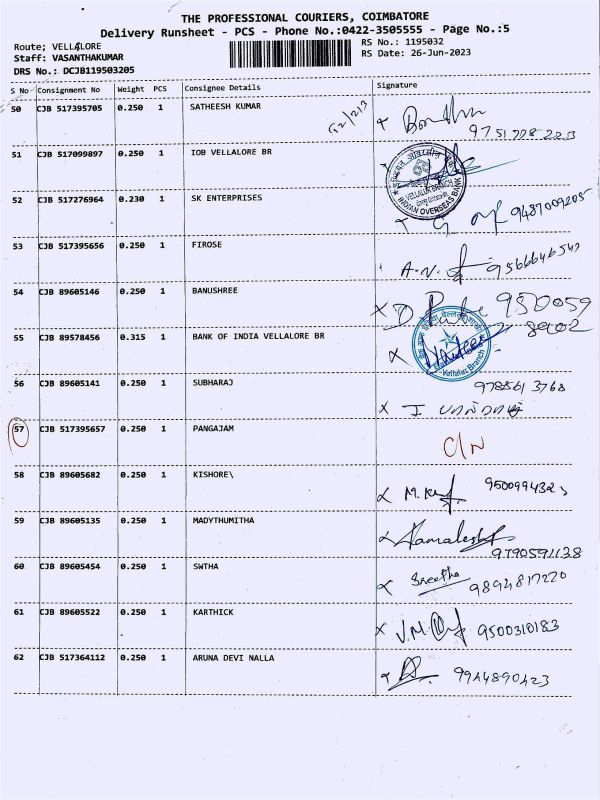 THE PROFESSIONAL COURIERS, COIMBATORE
Delivery Runsheet - PCS - Phone No.:0422-3505555 - Page No.:5
Route; VELLALORE
RS No.: 1195032
Staff: VASANTHAKUMAR
RS Date: 26-Jun-2023
DRS No.: DCJB119503205
S No Consignment No Weight PCS Consignee Details Signature
50 CJB 517395705 0.250 1 SATHEESH KUMAR
51 CJB 517099897 0.250 1 IOB VELLALORE BR
VELLALUR BRANCH
INDIAN OVERSEAS BANK
52 CJB 517276964 0.230 1 SK ENTERPRISES 9487009205
53 CJB 517395656 0.250 1 FIROSE A.N. 9566646547
54 CJB 89605146 0.250 1 BANUSHREE X D 950059
8902
55 CJB 89578456 0.315 1 BANK OF INDIA VELLALORE BR
Vellalur Branch
56 CJB 89605141 0.250 1 SUBHARAJ 978561 3768
57 CJB 517395657 0.250 1 PANGAJAM C/N
58 CJB 89605682 0.250 1 KISHORE\
59 CJB 89605135 0.250 1 MADYTHUMITHA
9790591138
60 CJB 89605454 0.250 1 SWTHA Sreetha 9894817220
61 CJB 89605522 0.250 1 KARTHICK X J.M. 9500310183
62 CJB 517364112 0.250 1 ARUNA DEVI NALLA 9944890423